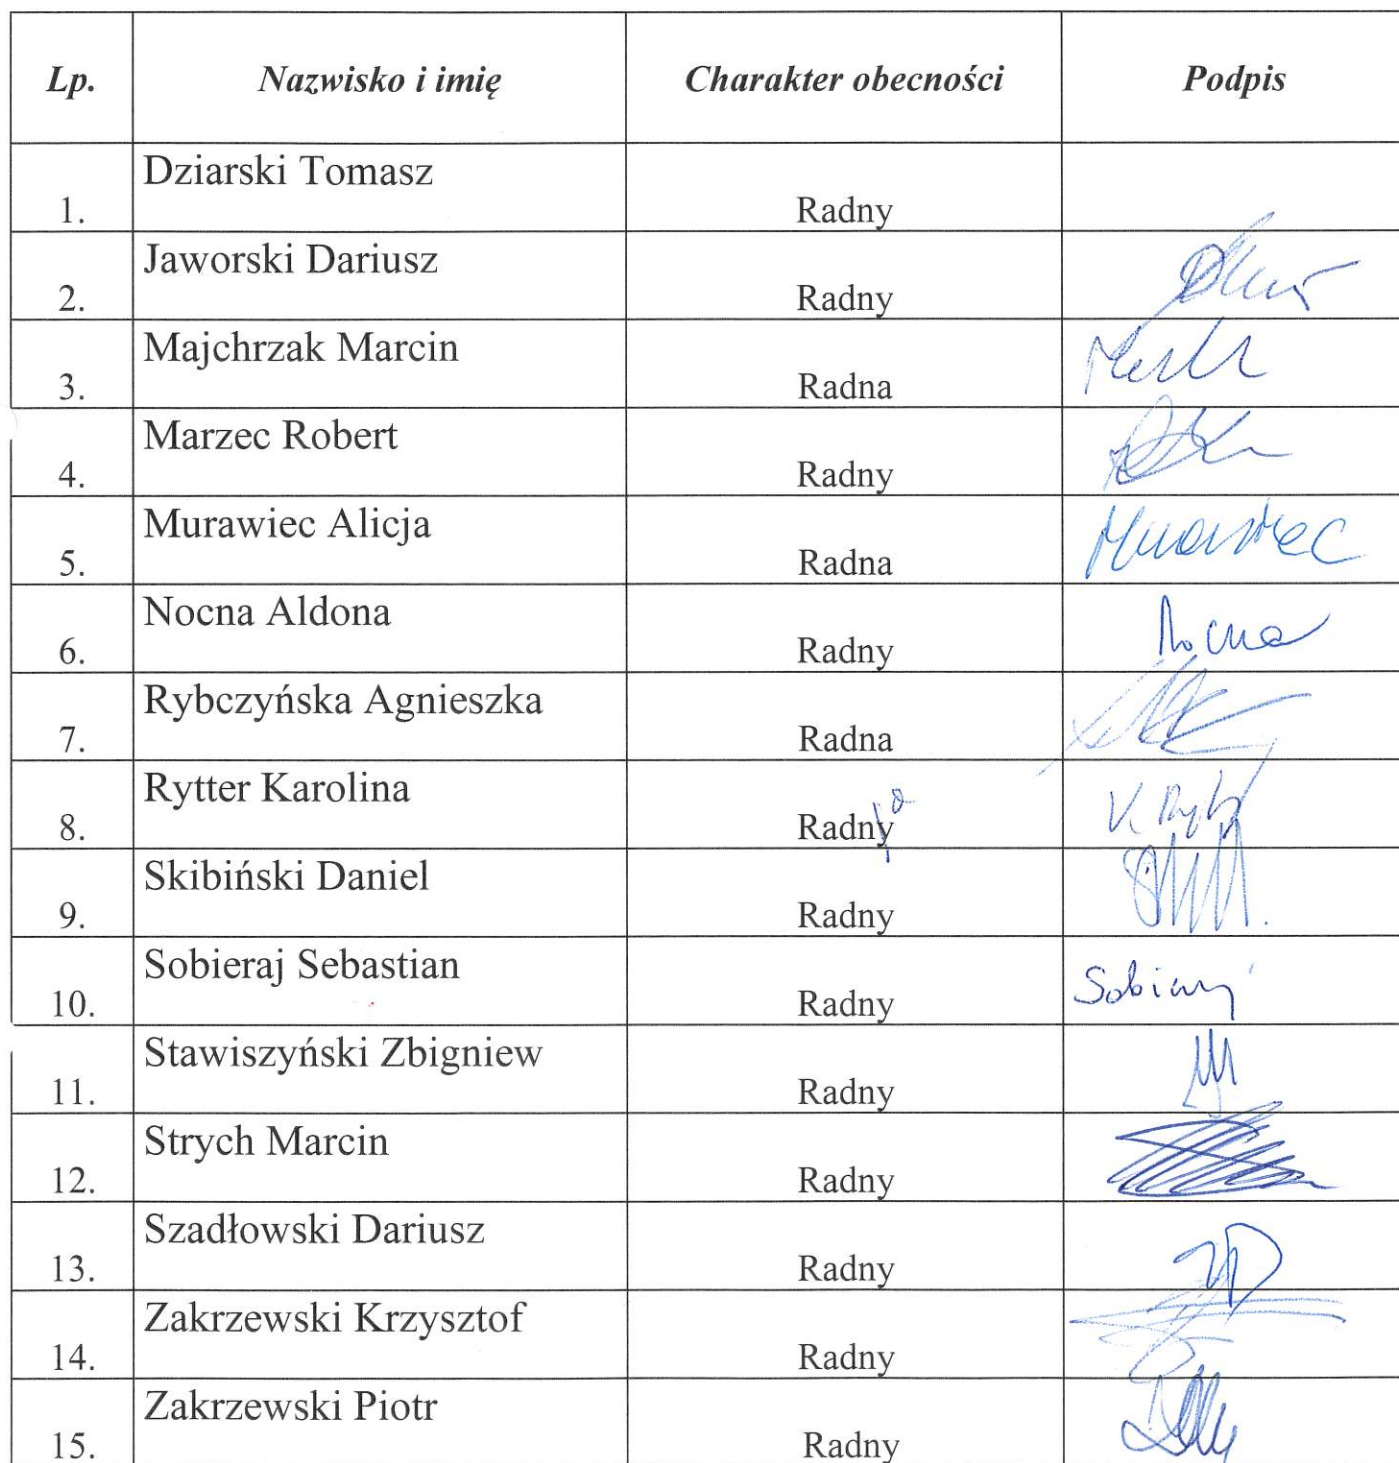 Lp. Nazwisko i imię Charakter obecności Podpis
1. Dziarski Tomasz Radny
2. Jaworski Dariusz Radny
3. Majchrzak Marcin Radna
4. Marzec Robert Radny
5. Murawiec Alicja Radna Murawiec
6. Nocna Aldona Radny Nocna
7. Rybczyńska Agnieszka Radna
8. Rytter Karolina Radny a
9. Skibiński Daniel Radny
10. Sobieraj Sebastian Radny Sobieraj
11. Stawiszyński Zbigniew Radny
12. Strych Marcin Radny
13. Szadłowski Dariusz Radny
14. Zakrzewski Krzysztof Radny
15. Zakrzewski Piotr Radny